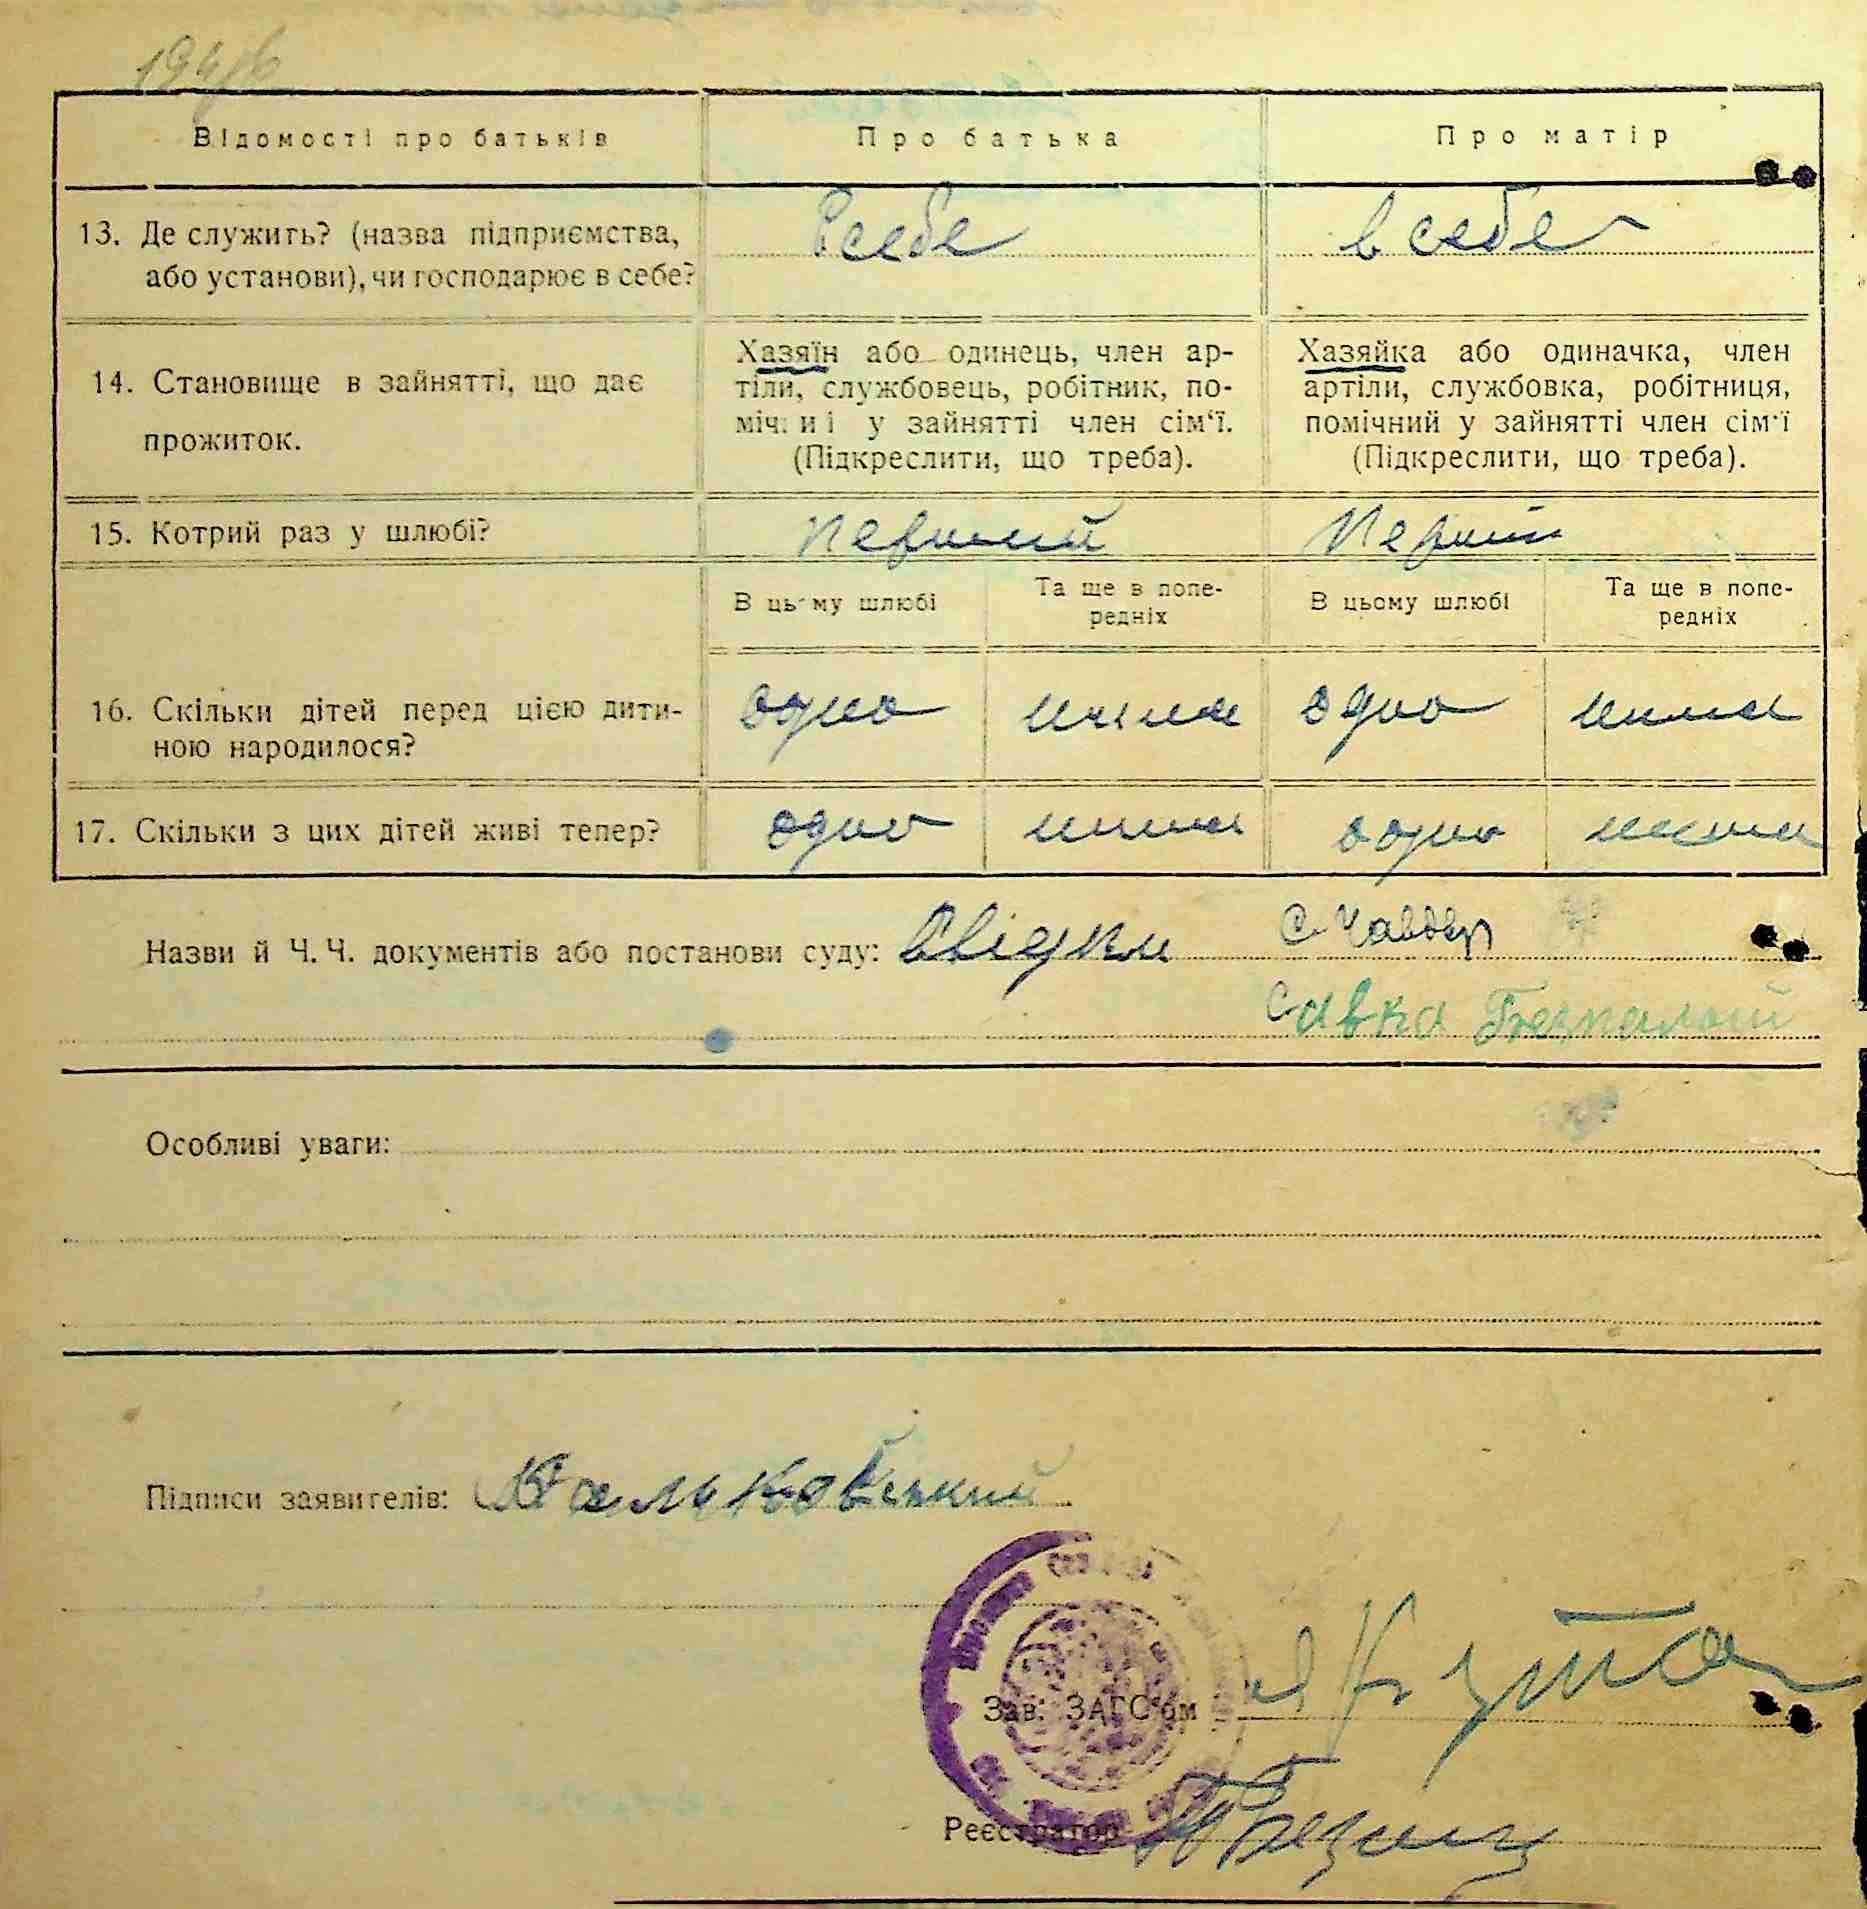 Відомості про батьків
Про батька
Про матір
13. Де служить? (назва підприємства,
або установи), чи господарює в себе?
В себе
в себе
14. Становище в зайнятті, що дає
прожиток.
Хазяїн або одинець, член ар-
тіли, службовець, робітник, по-
міч и і у зайнятті член сім‘ї.
(Підкреслити, що треба).
Хазяйка або одиначка, член
артіли, службовка, робітниця,
помічний у зайнятті член сім‘ї
(Підкреслити, що треба).
15. Котрий раз у шлюбі?
Перший
Перший
В цьму шлюбі
Та ще в попе-
редніх
В цьому шлюбі
Та ще в попе-
редніх
16. Скільки дітей перед цією дити-
ною народилося?
одно
одно
17. Скільки з цих дітей живі тепер?
одно
одно
Назви й Ч. Ч. документів або постанови суду: Свідки
Савка Безпалый
Особливі уваги:
Підписи заявителів:
Зав. ЗАГС‘ом
Реєстратор